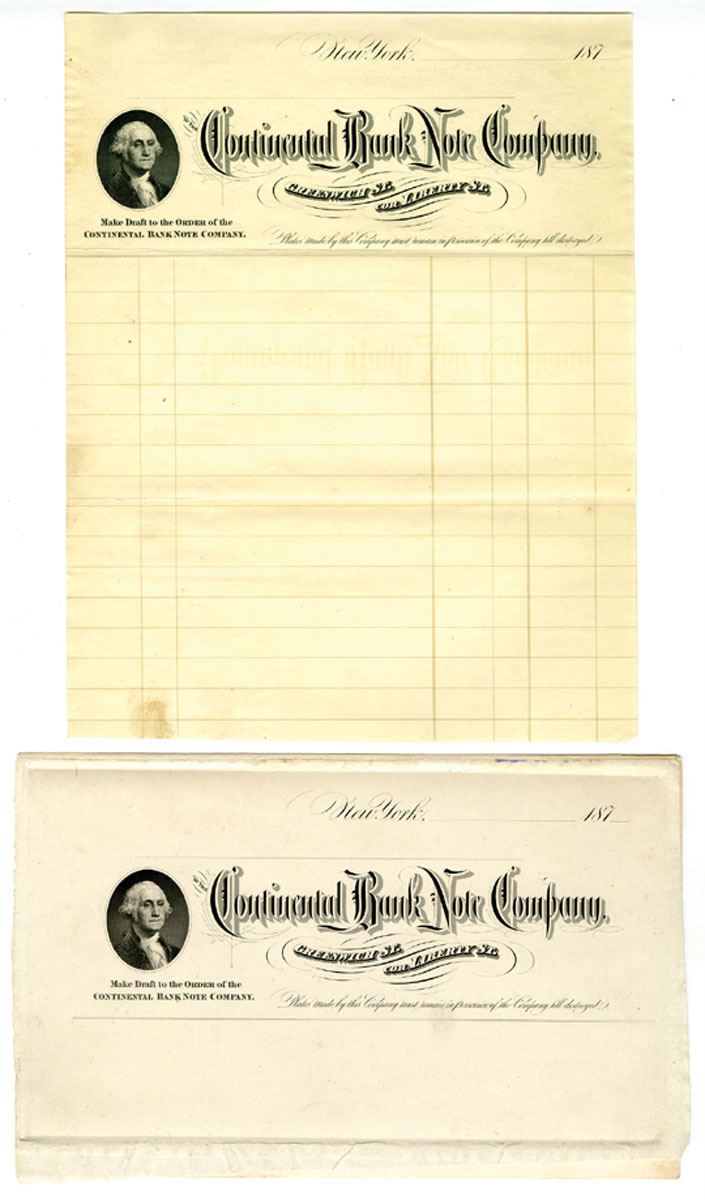 New York, 187
To The
Continental Bank Note Company.
GREENWICH ST.
COR LIBERTY ST.
Make Draft to the ORDER of the
CONTINENTAL BANK NOTE COMPANY.
Plates made by this Company must remain in possession of the Company till destroyed.
New York, 187
To The
Continental Bank Note Company.
GREENWICH ST.
COR LIBERTY ST.
Make Draft to the ORDER of the
CONTINENTAL BANK NOTE COMPANY.
Plates made by this Company must remain in possession of the Company till destroyed.